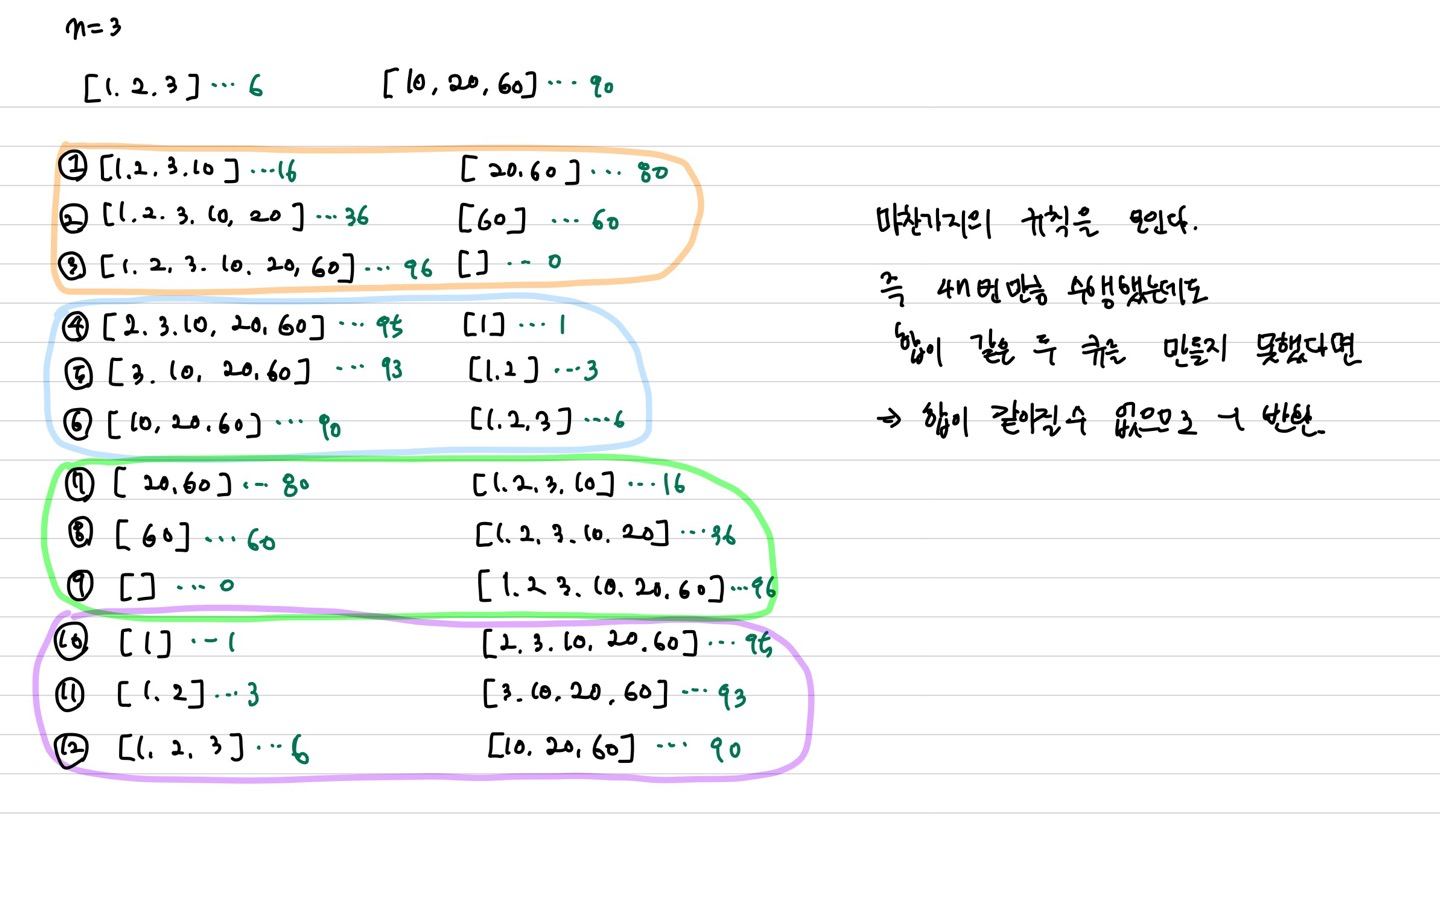 n=3
[1. 2. 3] ... 6 [10, 20, 60] ... 90
① [1. 2. 3. 10] ... 16 [20. 60] ... 80
② [1. 2. 3. 10, 20] ... 36 [60] ... 60
③ [1. 2. 3. 10. 20, 60] ... 96 [] ... 0
④ [2. 3. 10, 20, 60] ... 95 [1] ... 1
⑤ [3. 10, 20, 60] ... 93 [1. 2] ... 3
⑥ [10, 20. 60] ... 90 [1. 2, 3] ... 6
⑦ [20, 60] ... 80 [1. 2. 3, 10] ... 16
⑧ [60] ... 60 [1. 2, 3. 10. 20] ... 36
⑨ [] ... 0 [1. 2 3. 10. 20. 60] ... 96
⑩ [1] ... 1 [2. 3. 10, 20. 60] ... 95
⑪ [1. 2] ... 3 [3. 10, 20, 60] ... 93
⑫ [1. 2, 3] ... 6 [10. 20, 60] ... 90
마찬가지의 규칙을 보인다.
즉 4n번 만큼 수행했는데도
합이 같은 두 큐를 만들지 못했다면
→ 합이 같아질 수 없으므로 -1 반환